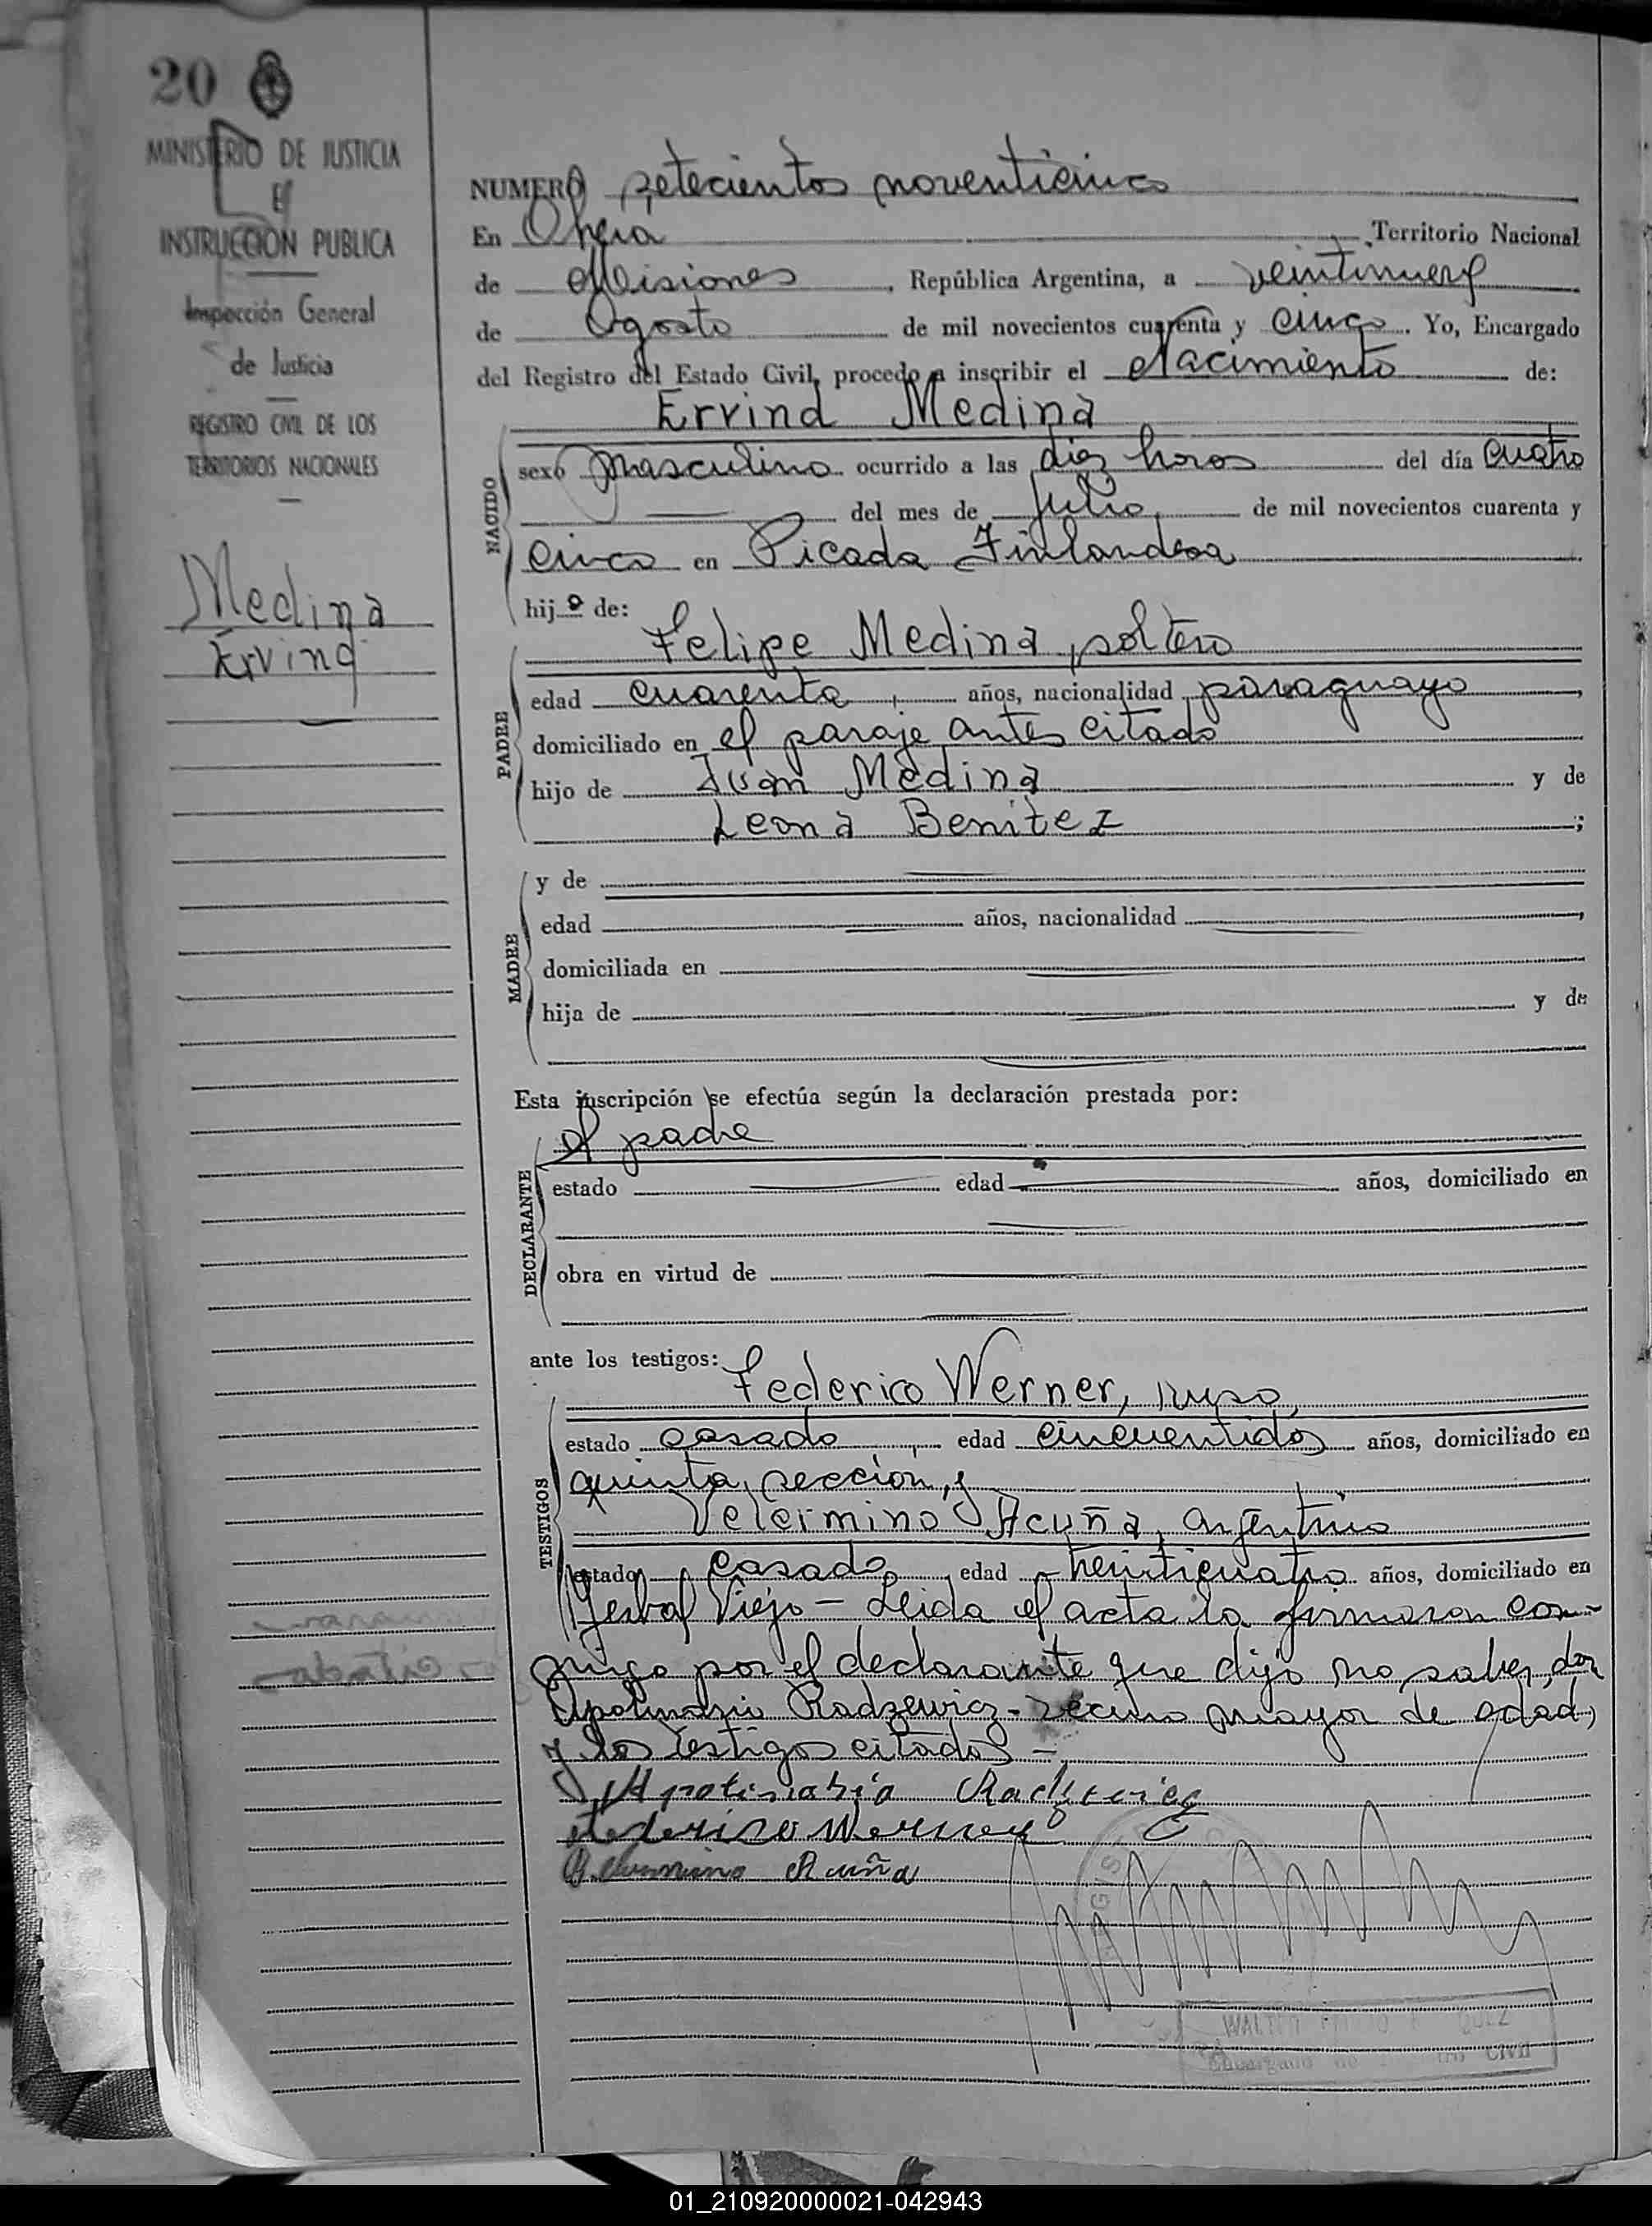 20
MINISTERIO DE JUSTICIA
E
INSTRUCCION PUBLICA
Inspección General
de Justicia
REGISTRO CIVIL DE LOS
TERRITORIOS NACIONALES
Medina
Ervind
NUMERO setecientos noventicinco
En Oberá Territorio Nacional
de Misiones, República Argentina, a veintinueve
de Agosto de mil novecientos cuarenta y cinco. Yo, Encargado
del Registro del Estado Civil, procedo a inscribir el Nacimiento de:
Ervind Medina
NACIDO
sexo masculino ocurrido a las diez horas del día cuatro
del mes de Julio, de mil novecientos cuarenta y
cinco en Picada Finlandesa
hijo de:
Felipe Medina, soltero
PADRE
edad cuarenta, años, nacionalidad paraguayo,
domiciliado en el paraje antes citado
hijo de Juan Medina y de
Leona Benitez;
MADRE
y de
edad años, nacionalidad,
domiciliada en
hija de y de
Esta inscripción se efectúa según la declaración prestada por:
el padre
DECLARANTE
estado edad años, domiciliado en
obra en virtud de
ante los testigos:
Federico Werner, ruso,
TESTIGOS
estado casado, edad cincuentidos años, domiciliado en
quinta sección, y
Velermino Acuña, argentino
estado casado, edad treinticuatro años, domiciliado en
Yerbal Viejo - Leida el acta la firmaron con-
migo por el declarante que dijo no saber, don
Apolinario Radzewicz - vecino mayor de edad,
y los testigos citados -
Apolinario
Federico Werner
Acuña
WALTER
Encargado de Civil
01_210920000021-042943